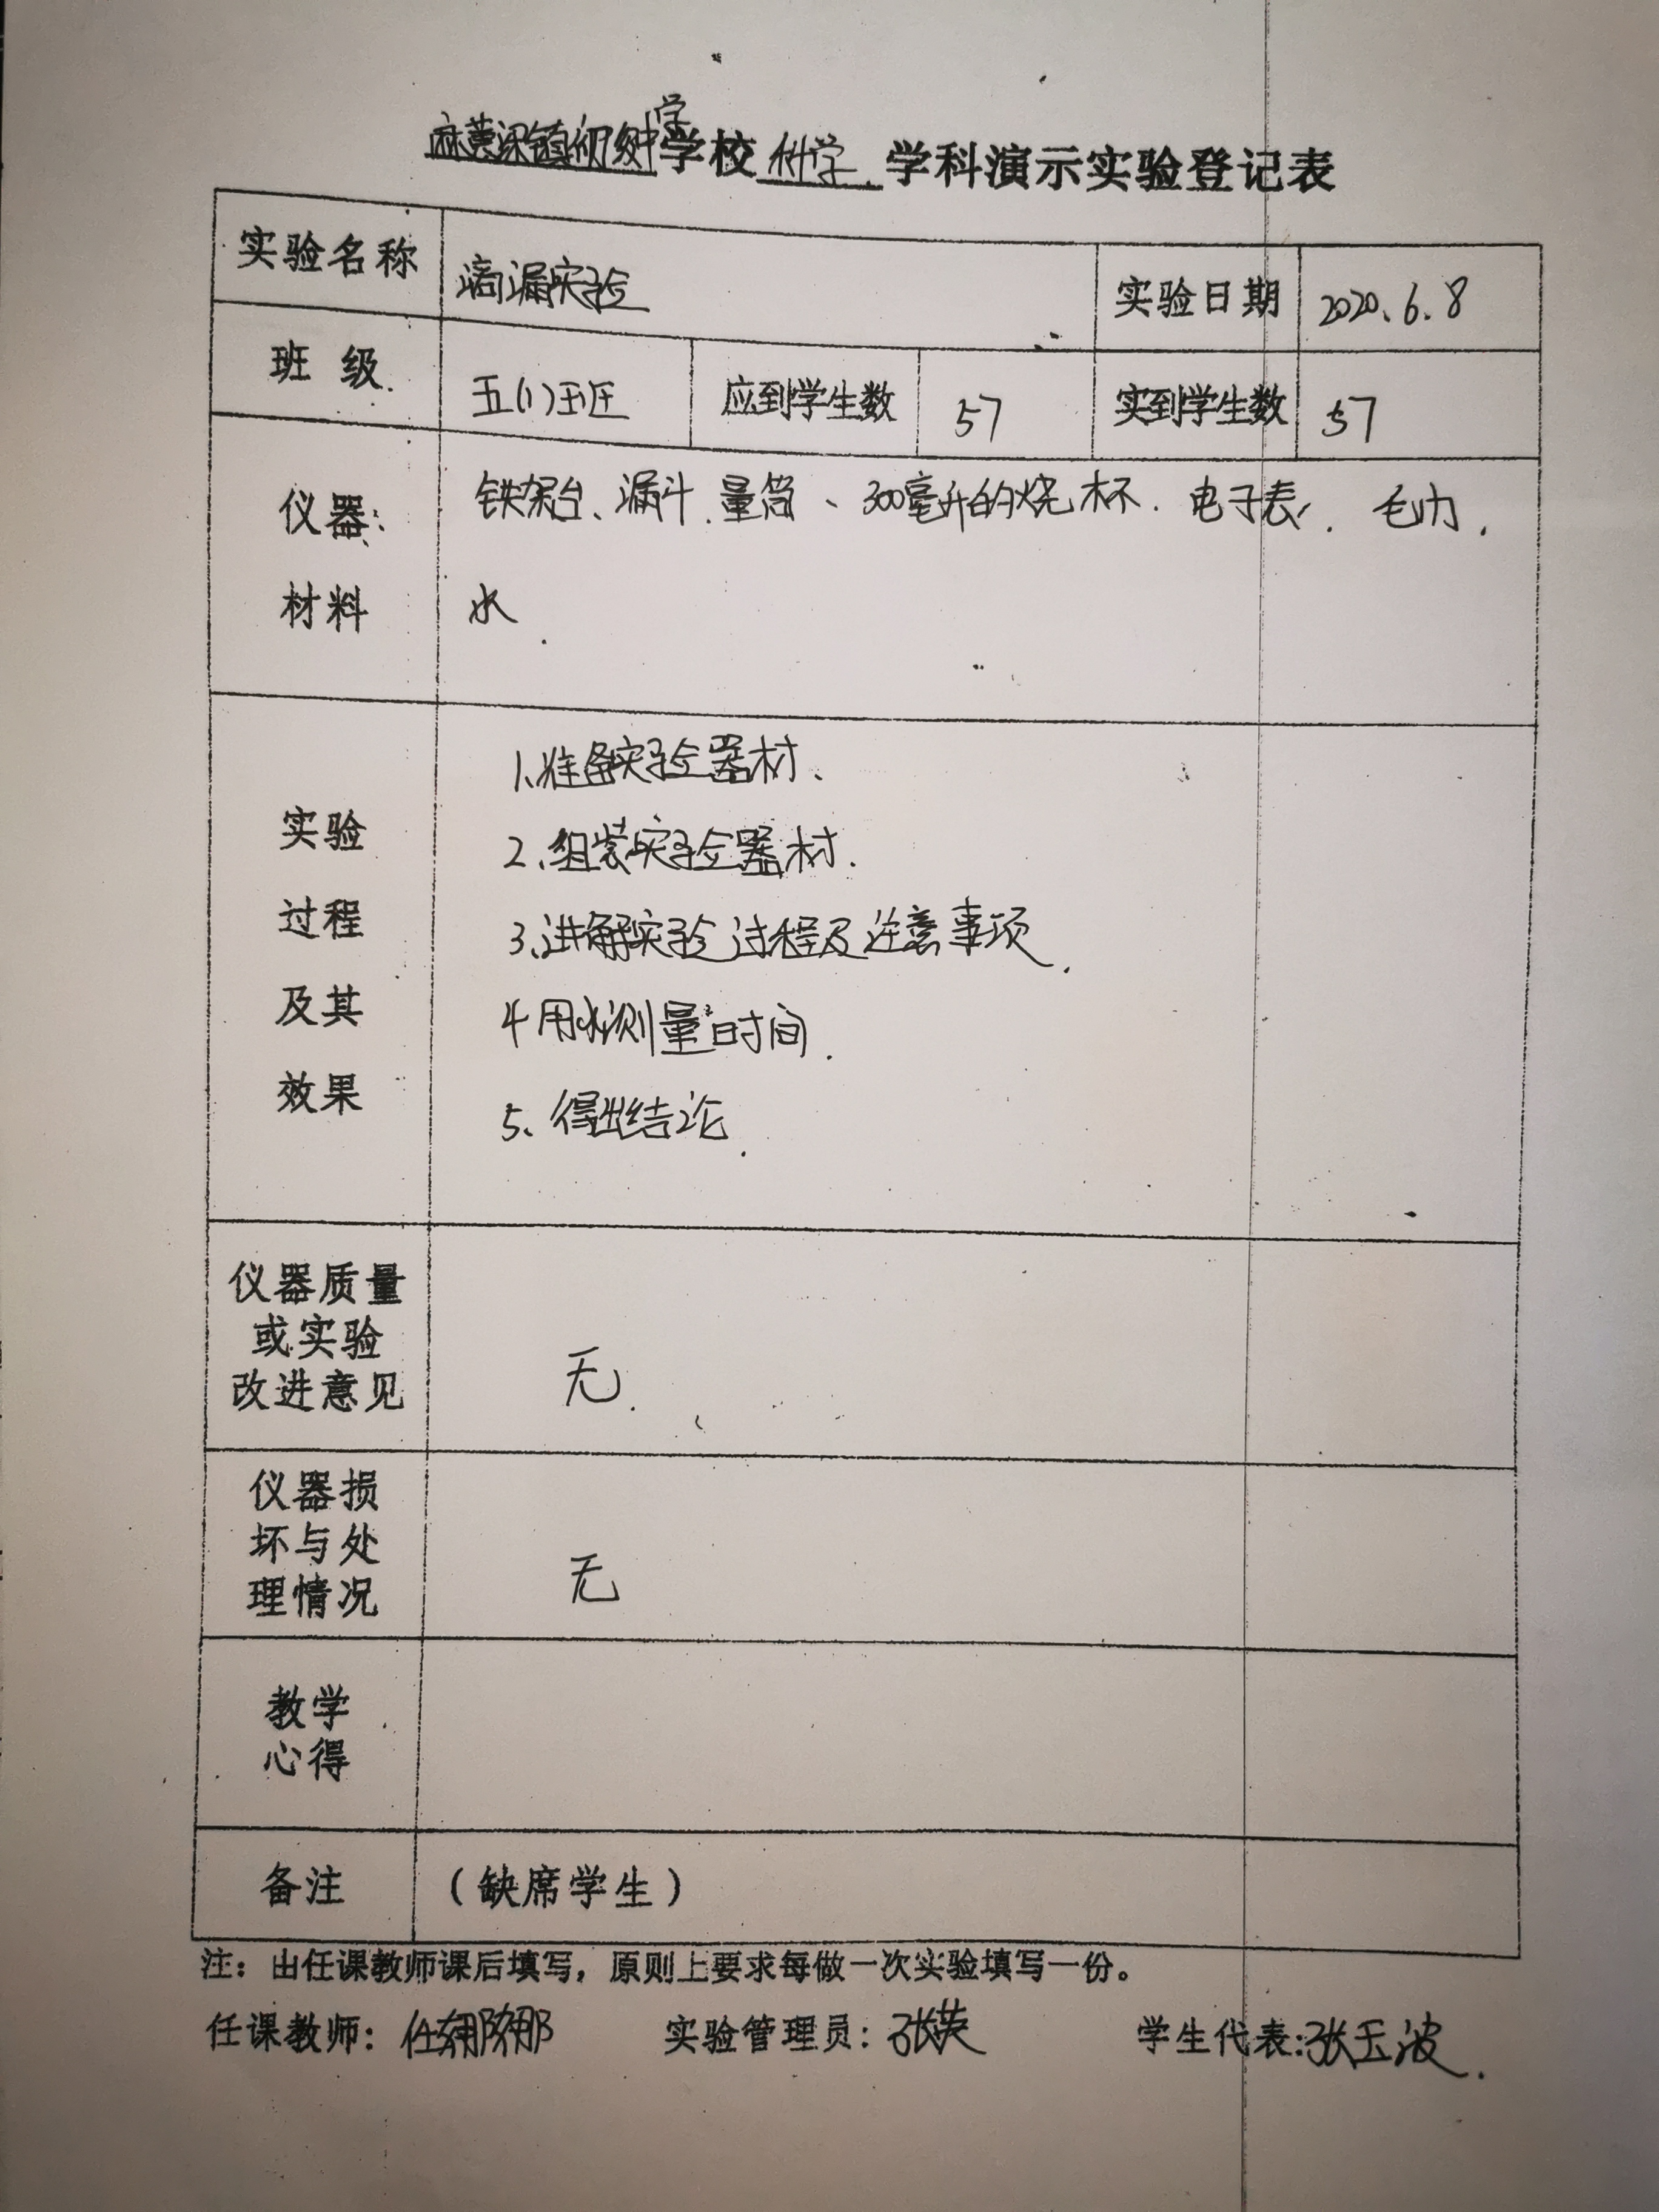 麻黄梁镇初级中学学校科学学科演示实验登记表
实验名称 滴漏实验 实验日期 2020.6.8
班级 五(1)班 应到学生数 57 实到学生数 57
仪器: 铁架台、漏斗、量筒、300毫升的烧杯、电子表、毛巾、
材料 水
实验
过程
及其
效果
1、准备实验器材、
2、组装实验器材.
3、讲解实验过程及注意事项.
4 用水测量时间.
5、得出结论.
仪器质量
或实验
改进意见
无.
仪器损
坏与处
理情况
无
教学
心得
备注 (缺席学生)
注：由任课教师课后填写，原则上要求每做一次实验填写一份。
任课教师：任娜娜 实验管理员：张英 学生代表:张玉波.